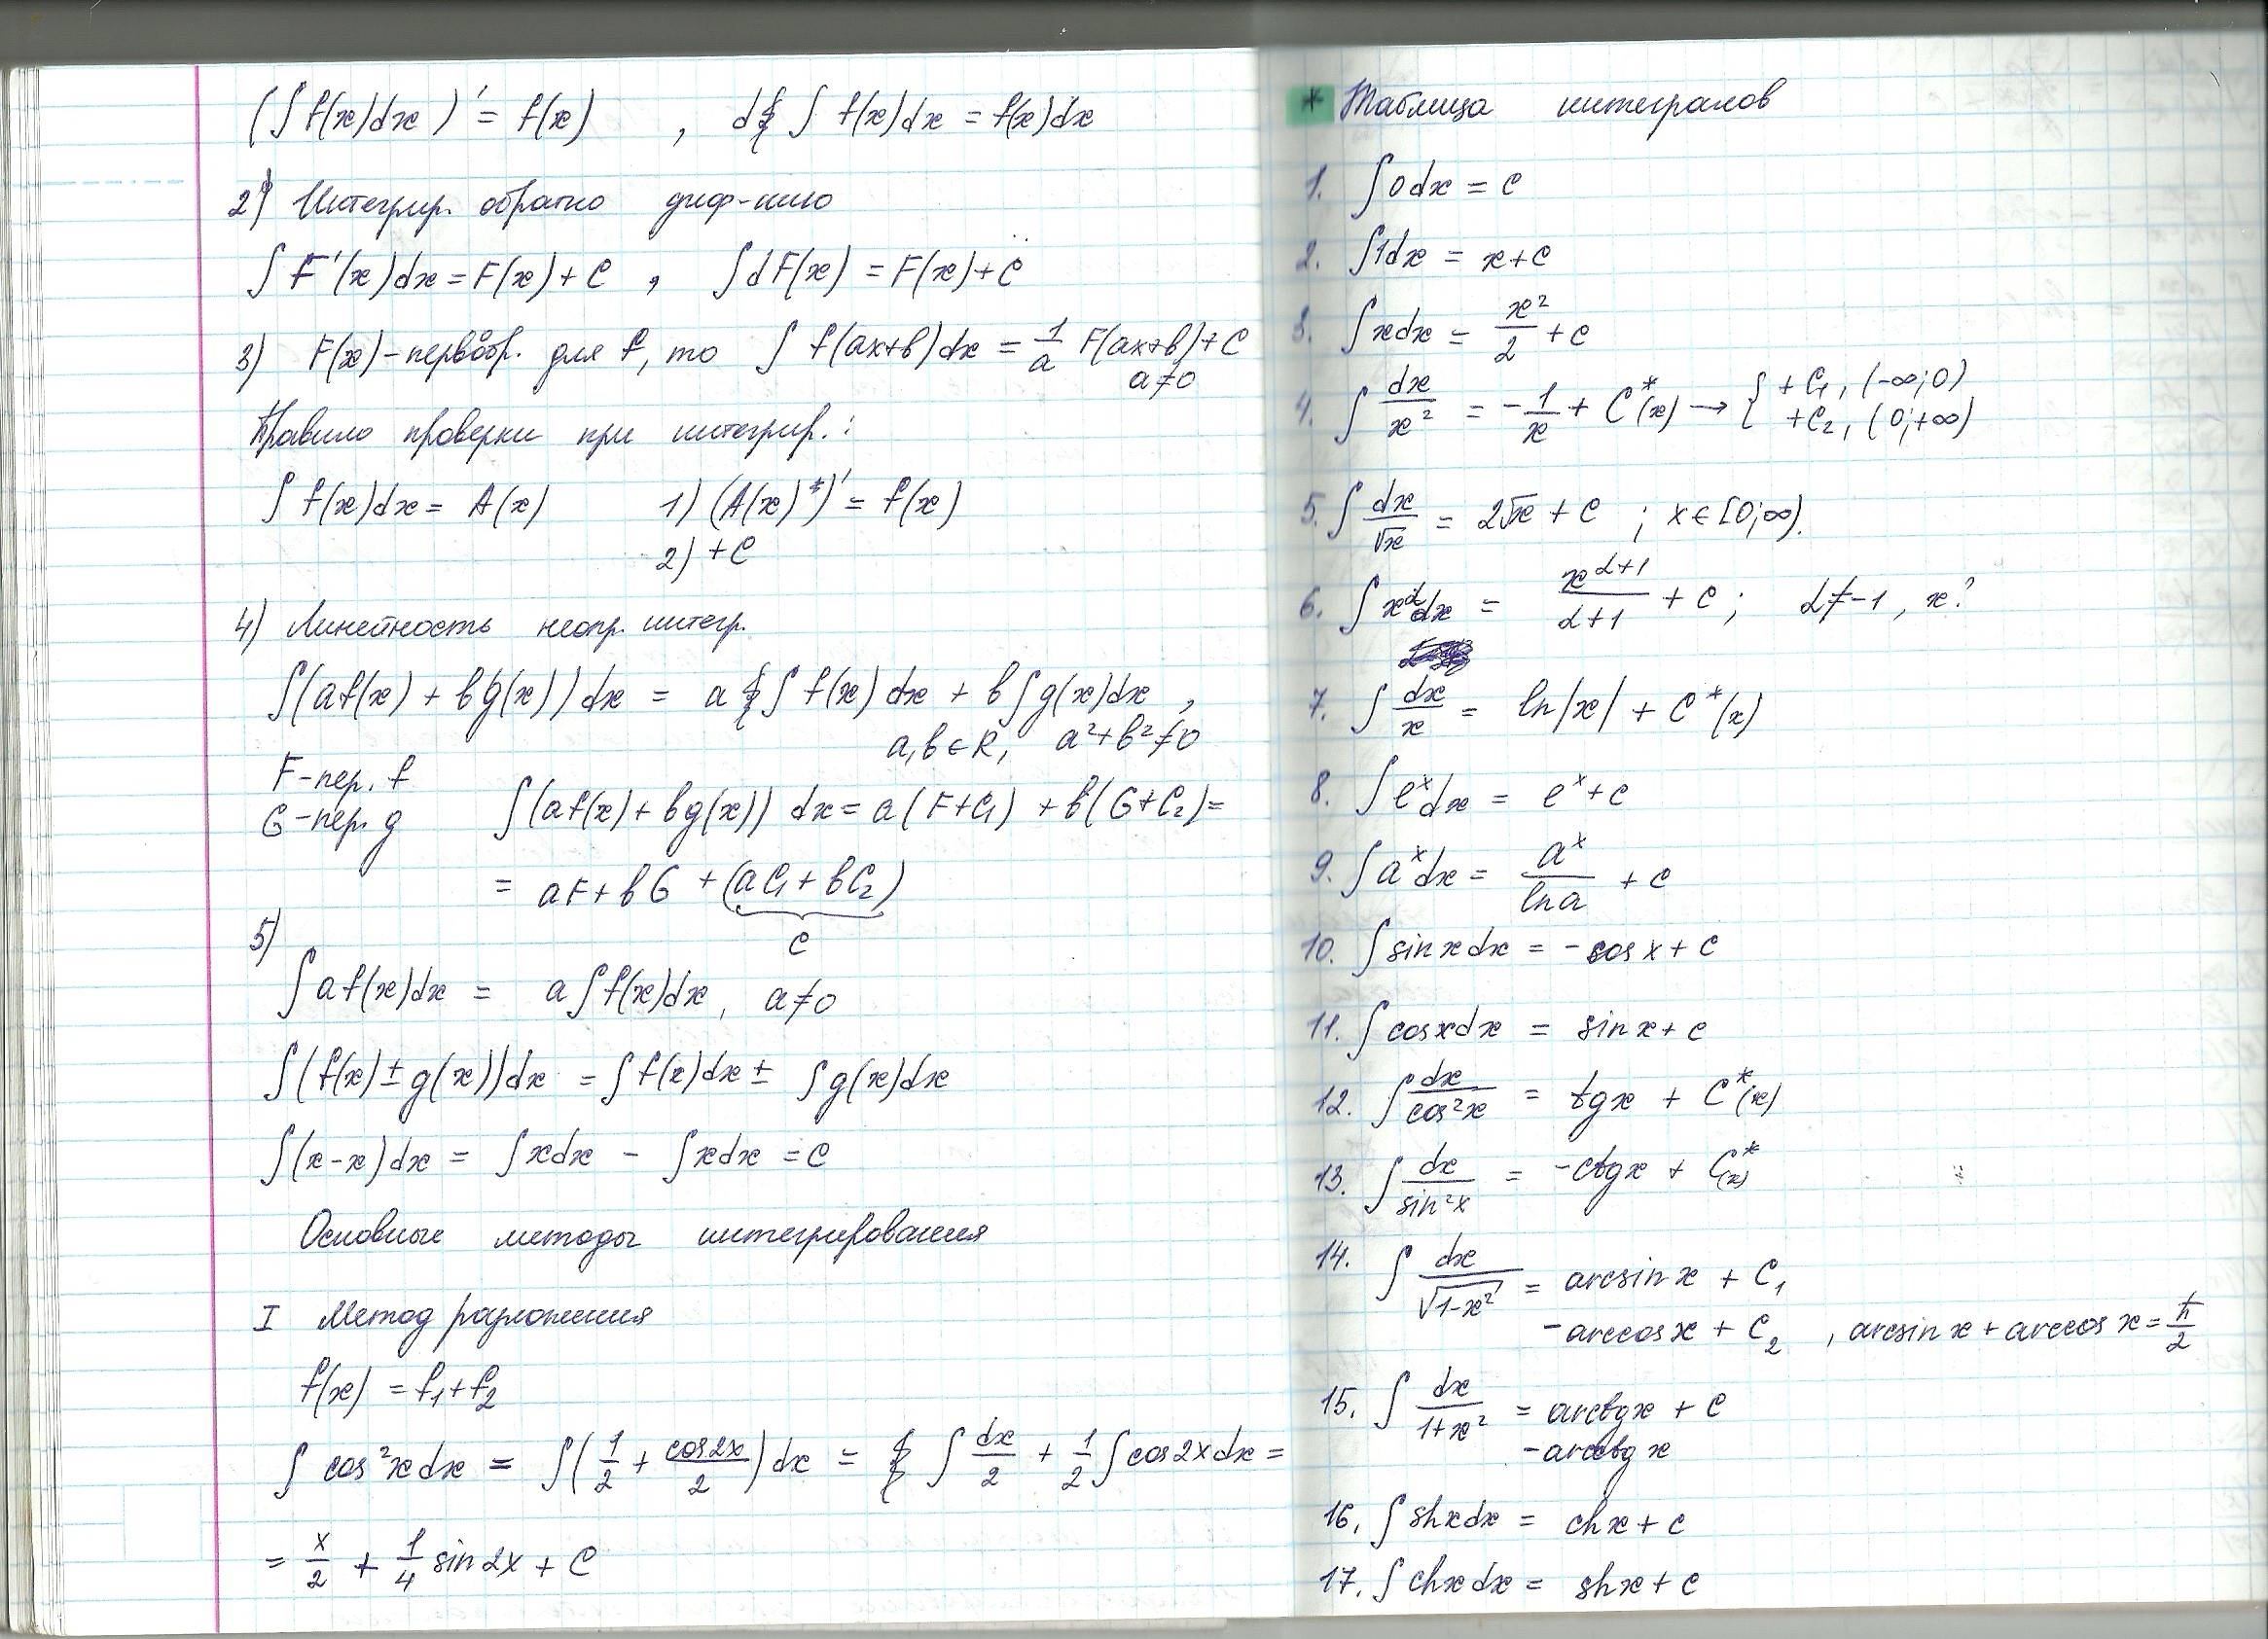 (∫ f(x)dx)' = f(x) , d ∫ f(x)dx = f(x)dx
2) Интегрир. обратно диф-нию
∫ F'(x)dx = F(x) + C , ∫ dF(x) = F(x) + C
3) F(x) - первообр. для f, то ∫ f(ax+b)dx = 1/a F(ax+b) + C
a ≠ 0
Правило проверки при интегрир.:
∫ f(x)dx = A(x) 1) (A(x)*)' = f(x)
2) + C
4) Линейность неопр. интегр.
∫ (af(x) + bg(x)) dx = a ∫ f(x) dx + b ∫ g(x)dx ,
a, b ∈ R, a² + b² ≠ 0
F - пер. f
G - пер. g ∫ (af(x) + bg(x)) dx = a(F + C₁) + b(G + C₂) =
= aF + bG + (aC₁ + bC₂)
C
5)
∫ af(x)dx = a ∫ f(x)dx, a ≠ 0
∫ (f(x) ± g(x))dx = ∫ f(x)dx ± ∫ g(x)dx
∫ (x - x)dx = ∫ xdx - ∫ xdx = C
Основные методы интегрирования
I Метод разложения
f(x) = f₁ + f₂
∫ cos²x dx = ∫ (1/2 + cos2x/2) dx = ∫ dx/2 + 1/2 ∫ cos2x dx =
= x/2 + 1/4 sin 2x + C
* Таблица интегралов
1. ∫ 0dx = C
2. ∫ 1dx = x + C
3. ∫ xdx = x²/2 + C
4. ∫ dx/x² = -1/x + C*(x) → { + C₁, (-∞; 0)
+ C₂, (0; +∞)
5. ∫ dx/√x = 2√x + C ; x ∈ [0; ∞).
6. ∫ x^α dx = x^(α+1)/(α+1) + C ; α ≠ -1, x?
7. ∫ dx/x = ln|x| + C*(x)
8. ∫ eˣdx = eˣ + C
9. ∫ aˣdx = aˣ/ln a + C
10. ∫ sin x dx = - cos x + C
11. ∫ cos x dx = sin x + C
12. ∫ dx/cos²x = tg x + C*(x)
13. ∫ dx/sin²x = -ctg x + C*(x)
14. ∫ dx/√(1-x²) = arcsin x + C₁
- arccos x + C₂ , arcsin x + arccos x = π/2
15. ∫ dx/(1+x²) = arctg x + C
- arcctg x
16. ∫ sh x dx = ch x + C
17. ∫ ch x dx = sh x + C